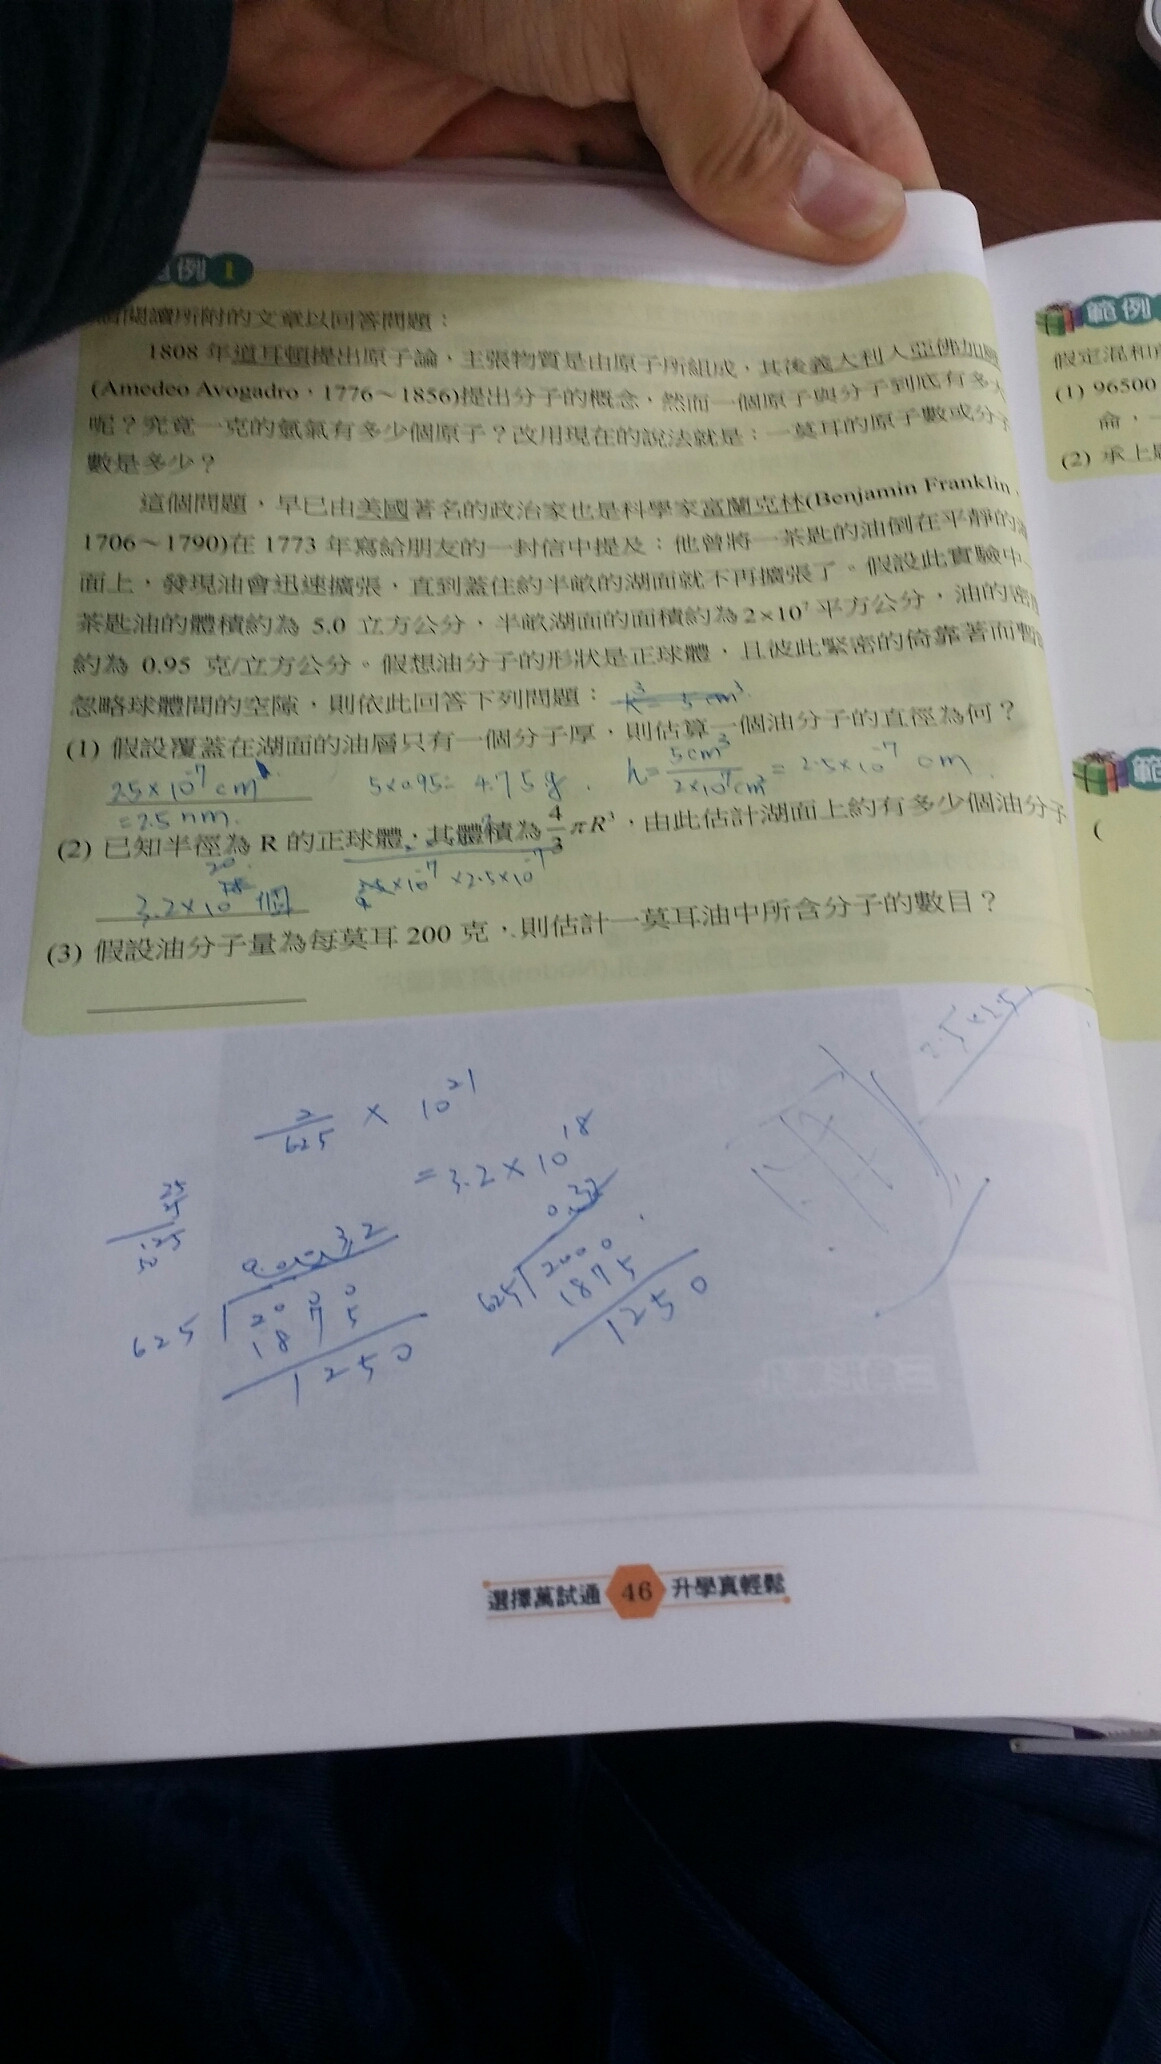 範例
範例 1
請閱讀所附的文章以回答問題：
1808 年道耳頓提出原子論，主張物質是由原子所組成，其後義大利人亞佛加
(Amedeo Avogadro，1776～1856)提出分子的概念，然而一個原子與分子到底有多大
呢？究竟一克的氫氣有多少個原子？改用現在的說法就是：一莫耳的原子數或分子
數是多少？
這個問題，早已由美國著名的政治家也是科學家富蘭克林(Benjamin Franklin，
1706～1790)在 1773 年寫給朋友的一封信中提及：他曾將一茶匙的油倒在平靜的湖
面上，發現油會迅速擴張，直到蓋住約半畝的湖面就不再擴張了。假設此實驗中一
茶匙油的體積約為 5.0 立方公分，半畝湖面的面積約為 2×10⁷ 平方公分，油的密度
約為 0.95 克/立方公分。假想油分子的形狀是正球體，且彼此緊密的倚靠著而暫
忽略球體間的空隙，則依此回答下列問題：
(1) 假設覆蓋在湖面的油層只有一個分子厚，則估算一個油分子的直徑為何？
2.5×10⁻⁷ cm 5×0.95= 4.75 g. h= 5cm³/2×10⁷cm² = 2.5×10⁻⁷ cm
=2.5 nm.
(2) 已知半徑為 R 的正球體，其體積為 4/3 πR³，由此估計湖面上約有多少個油分子
3.2×10 個 ×10⁻⁷ ×2.5×10⁻⁷
(3) 假設油分子量為每莫耳 200 克，則估計一莫耳油中所含分子的數目？
2/625 × 10²¹
= 3.2 × 10¹⁸
2.5×2.5
625 2000
1875
1250
625 2000
1875
1250
選擇萬試通 46 升學真輕鬆
範例
假定混和
(1) 96500
侖，一
(2) 承上題
(